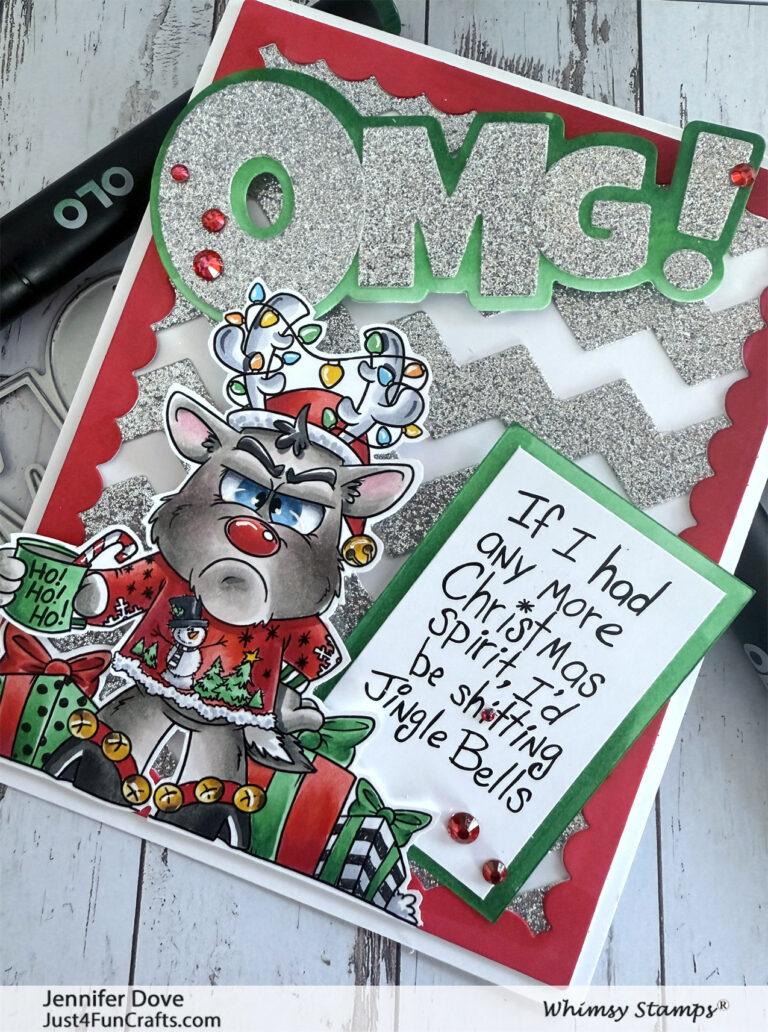 OLO
OMG!
HO!
HO!
HO!
If I had
any more
Christmas
spirit, I'd
be shitting
Jingle Bells
Jennifer Dove
Just4FunCrafts.com
Whimsy Stamps®